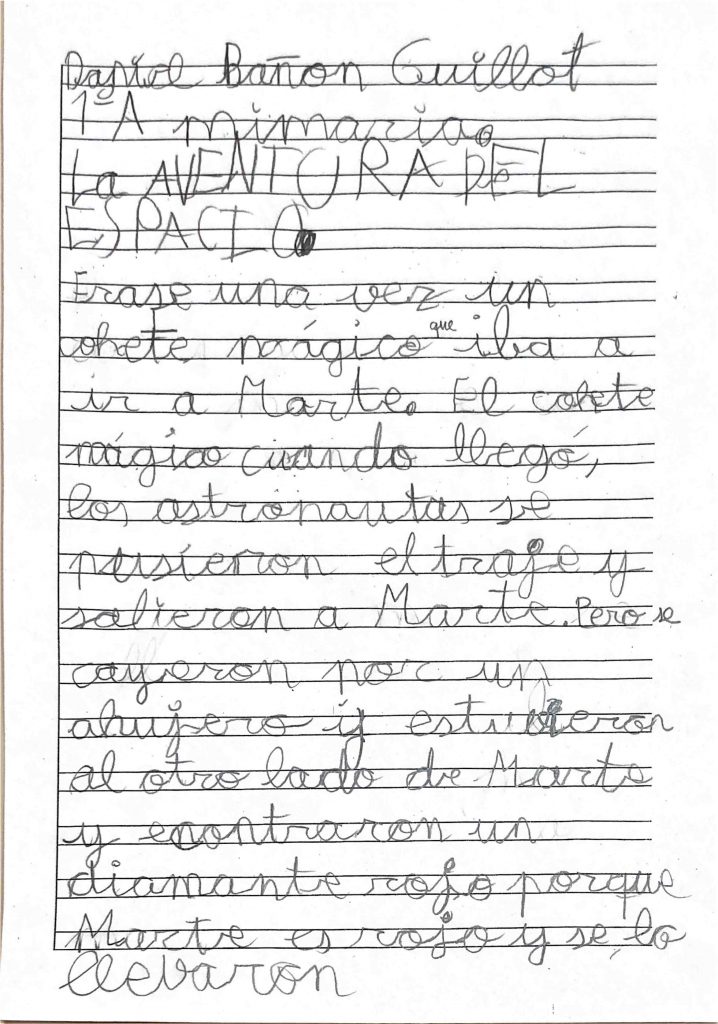 Daniel Bañon Guillot
1º A primaria.
La AVENTURA DEL
ESPACIO.
Erase una vez un
cohete mágico que iba a
ir a Marte. El cohete
mágico cuando llegó,
los astronautas se
pusieron el traje y
salieron a Marte. Pero se
cayeron por un
ahujero y estuvieron
al otro lado de Marte
y encontraron un
diamante rojo porque
Marte es rojo y se lo
llevaron